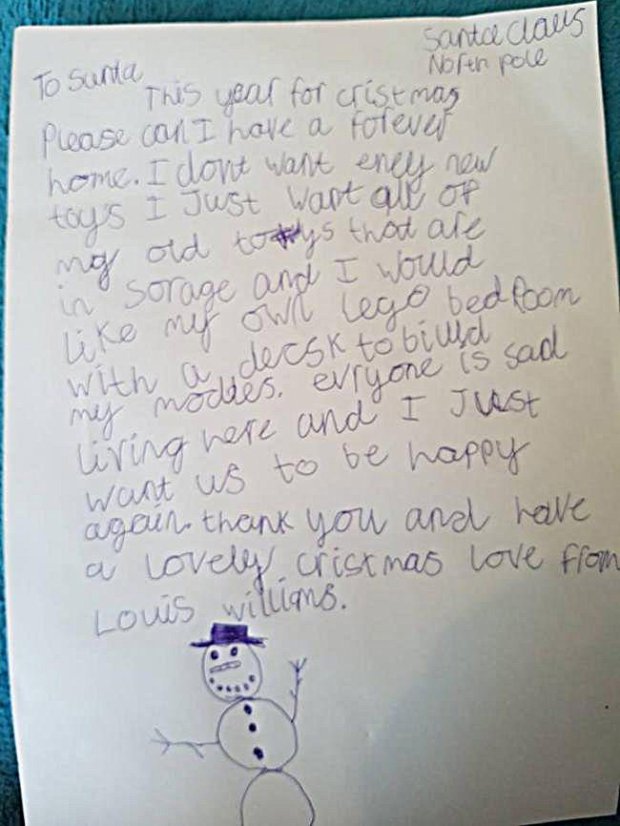 Santa Claus
North pole
To Santa
This year for cristmas
Please can I have a forever
home. I dont want eney new
toys I Just want all of
my old toys that are
in sorage and I would
like my own Lego bedroom
with a decsk to biuld
my moddes. evryone is sad
living here and I Just
want us to be happy
again. thank you and have
a lovely cristmas love from
Louis williams.